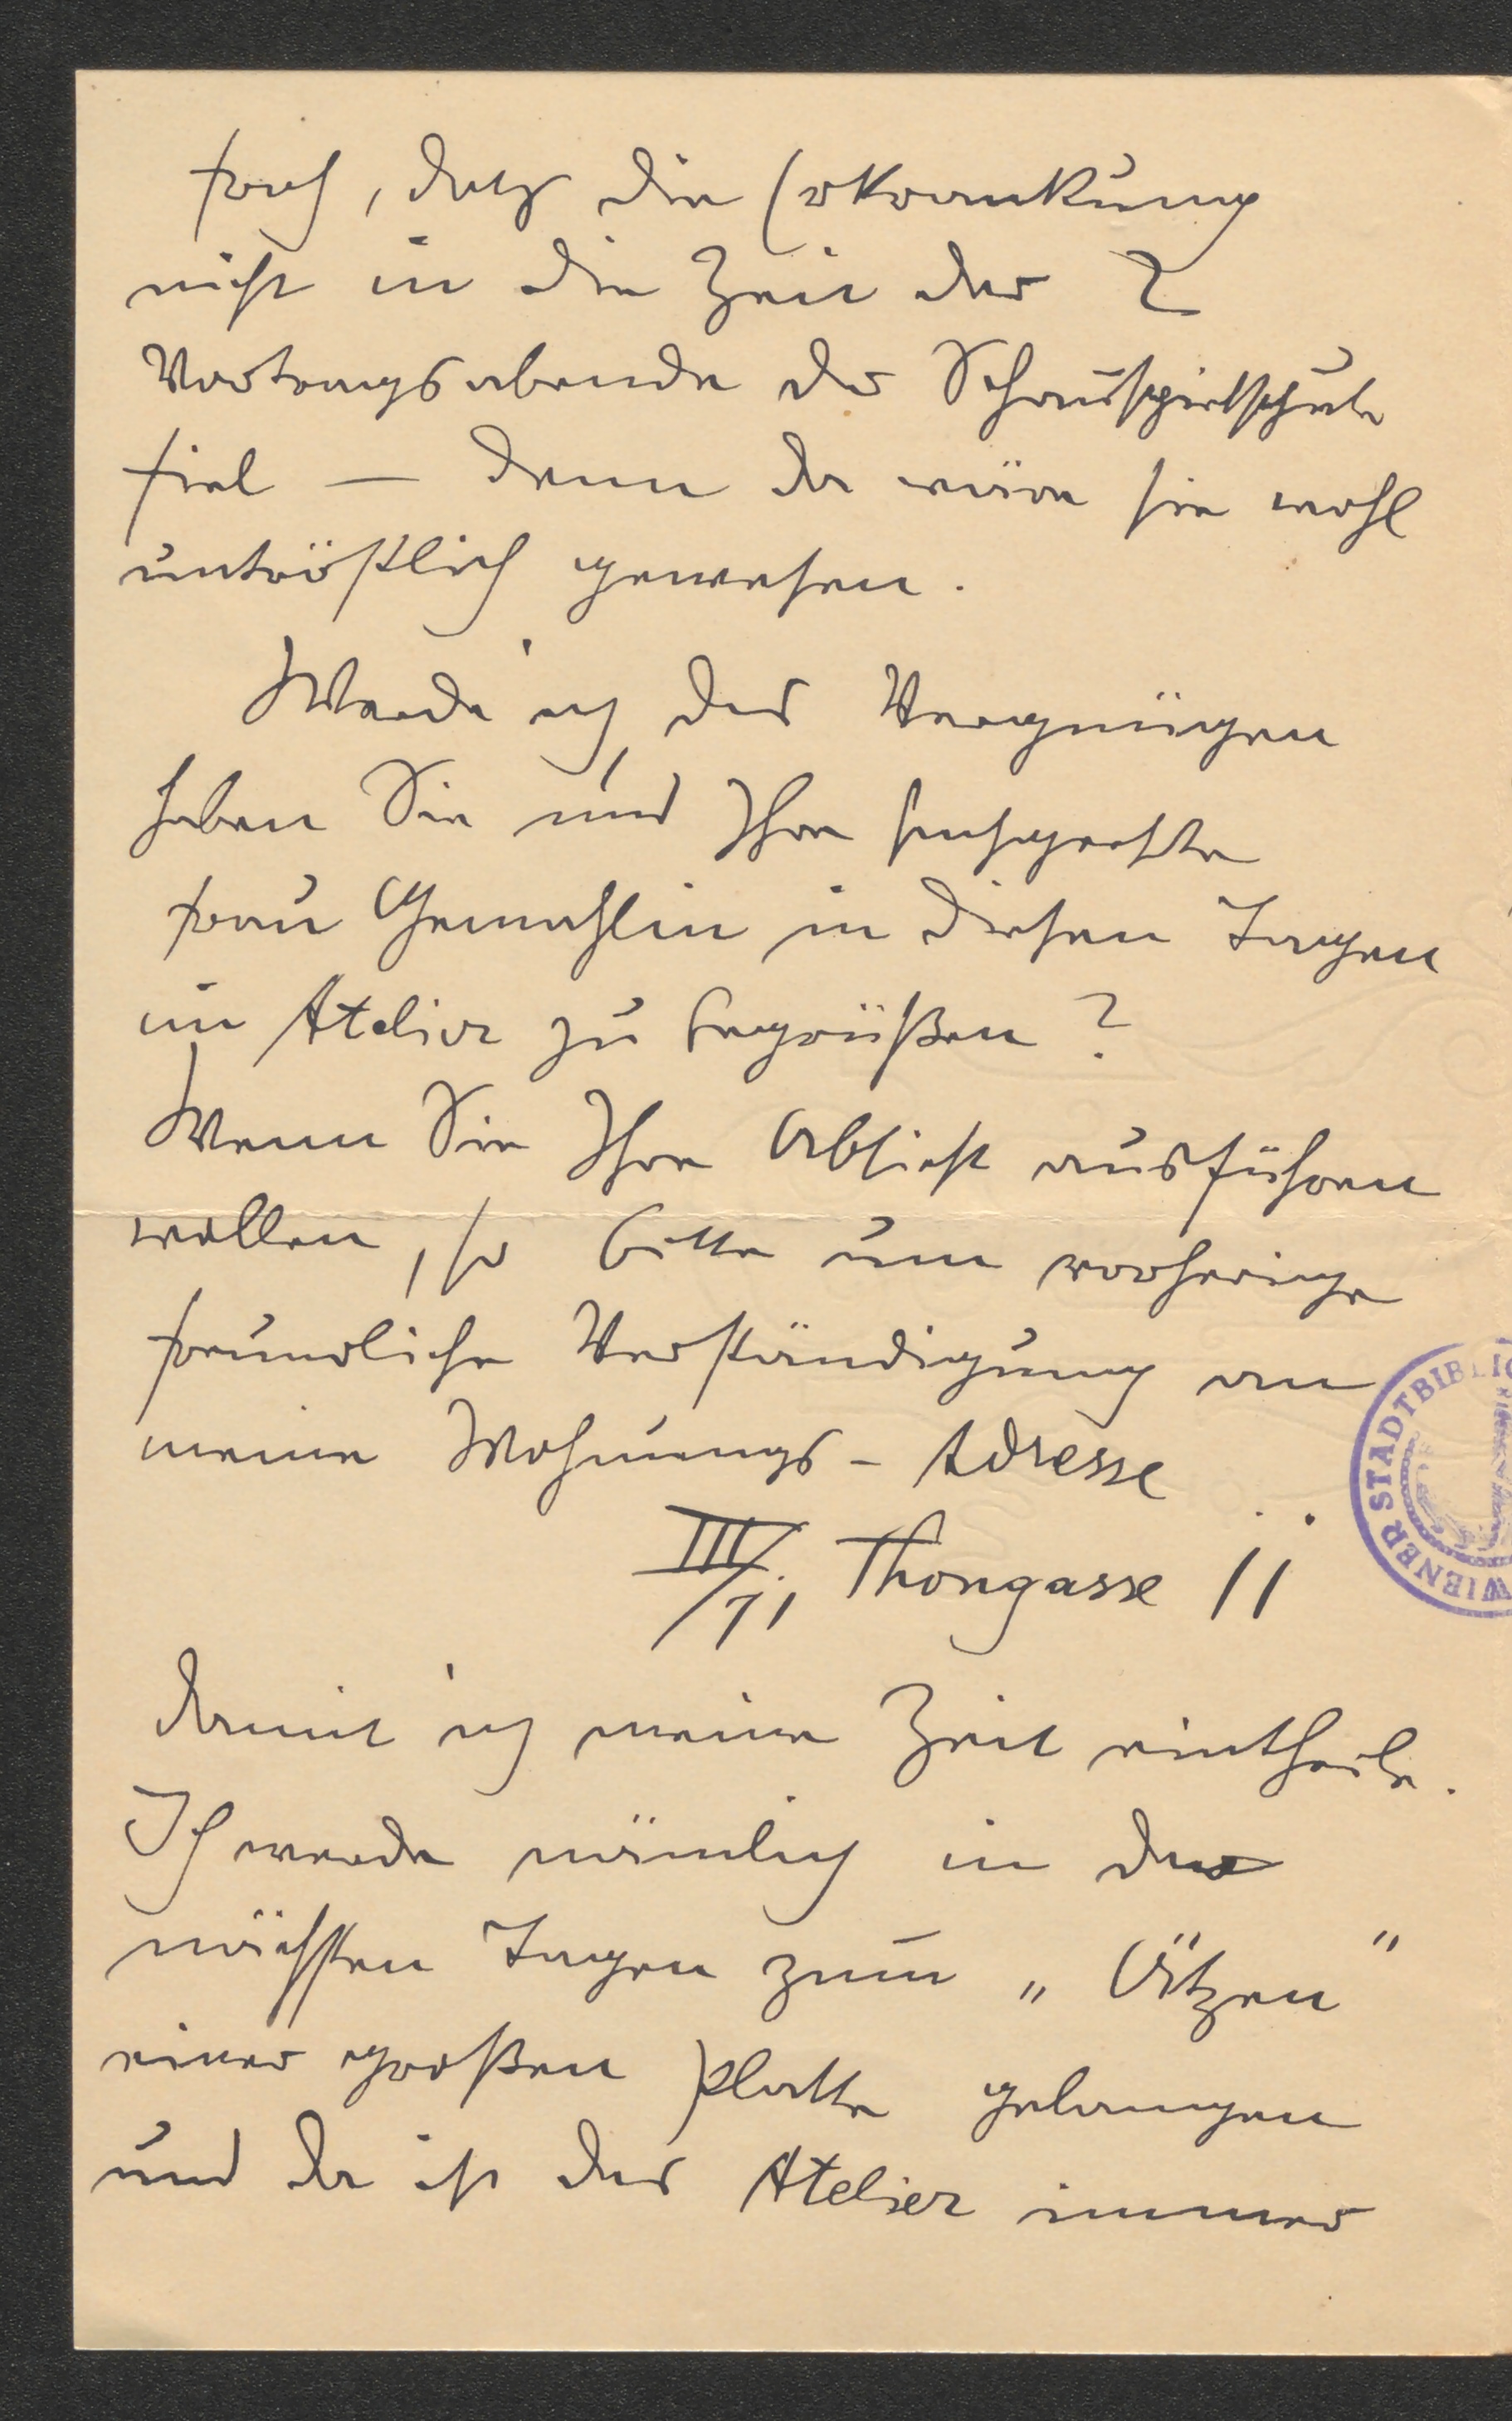 froh, daß die Erkrankung
nicht in die Zeit der 2
Vortragsabende der Schauspielschule
fiel — denn da wäre sie wohl
untröstlich gewesen.
Werde ich das Vergnügen
haben Sie und Ihre hochgeehrte
Frau Gemahlin in diesen Tagen
im Atelier zu begrüßen?
Wenn Sie Ihre Absicht ausführen
wollen, so bitte um vorherige
freundliche Verständigung an
meine Wohnungs-Adresse
III/1, Thongasse 11
damit ich meine Zeit eintheile.
Ich werde nämlich in den
nächsten Tagen zum „Ätzen"
einer großen Platte gelangen
und da ist das Atelier immer
WIENER STADTBIBLIO